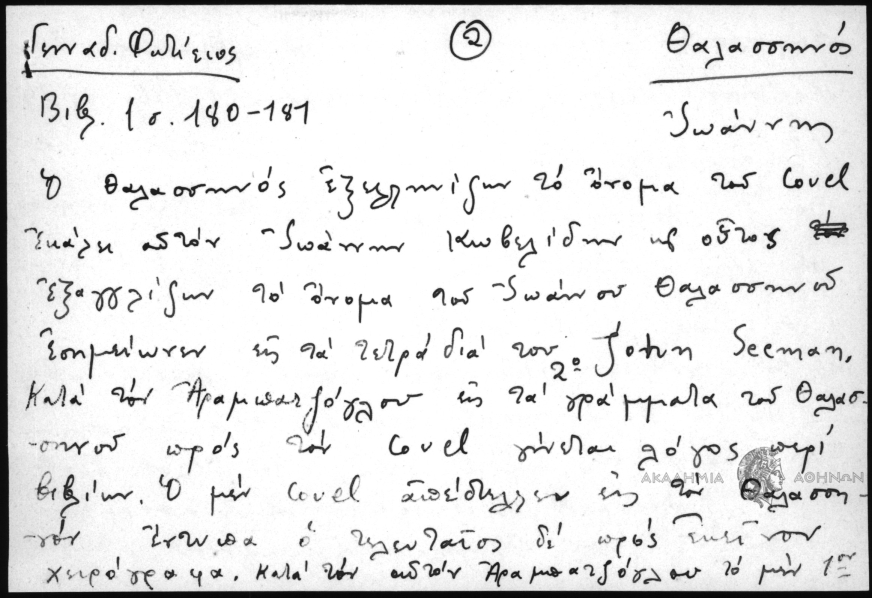 Γενναδ. Φωτίειος ② Θαλασσηνός
Βιβλ. 1 σ. 180-181 Ἰωάννης
Ὁ Θαλασσηνός ἐξελληνίζων τό ὄνομα τοῦ Covel
ἐκάλει αὐτόν Ἰωάννην Κωβελίδην κ οὗτος
ἐξαγγλίζων τό ὄνομα τοῦ Ἰωάννου Θαλασσηνοῦ
ἐσημείωνεν εἰς τά τετράδιά του John Seeman.
Κατά τόν Ἀραμπατζόγλου εἰς τά γράμματα τοῦ Θαλασ-
-σηνοῦ πρός τόν Covel γίνεται λόγος περί
βιβλίων. Ὁ μέν Covel ἀπέστελλεν εἰς τόν Θαλασση-
νόν ἔντυπα ὁ τελευταῖος δέ πρός ἐκεῖνον
χειρόγραφα. Κατά τόν αὐτόν Ἀραμπατζόγλου τό μέν 1ον
ΑΚΑΔΗΜΙΑ ΑΘΗΝΩΝ